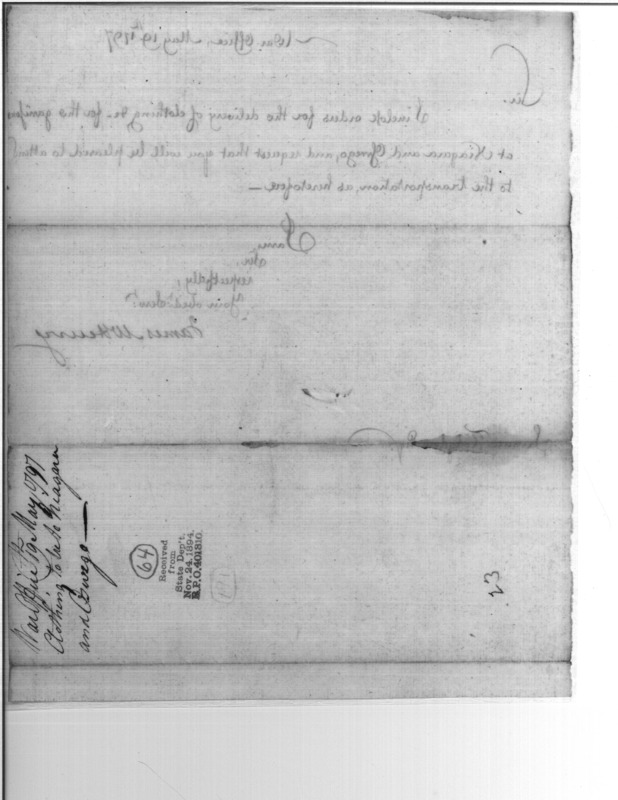 War Office, May 19th 1797
Sir
I inclose orders for the delivery of clothing &c. for the garrisons
at Niagara and Oswego, and request that you will be pleased to attend
to the transportation, as heretofore —
I am,
Sir,
respectfully,
Your obed. serv.t
James McHenry
War Office 19 May 1797
Clothing to Niagara
and Oswego —
64
Received
from
State Dep't.
Nov. 24, 1894.
R.P.O. 401810.
23